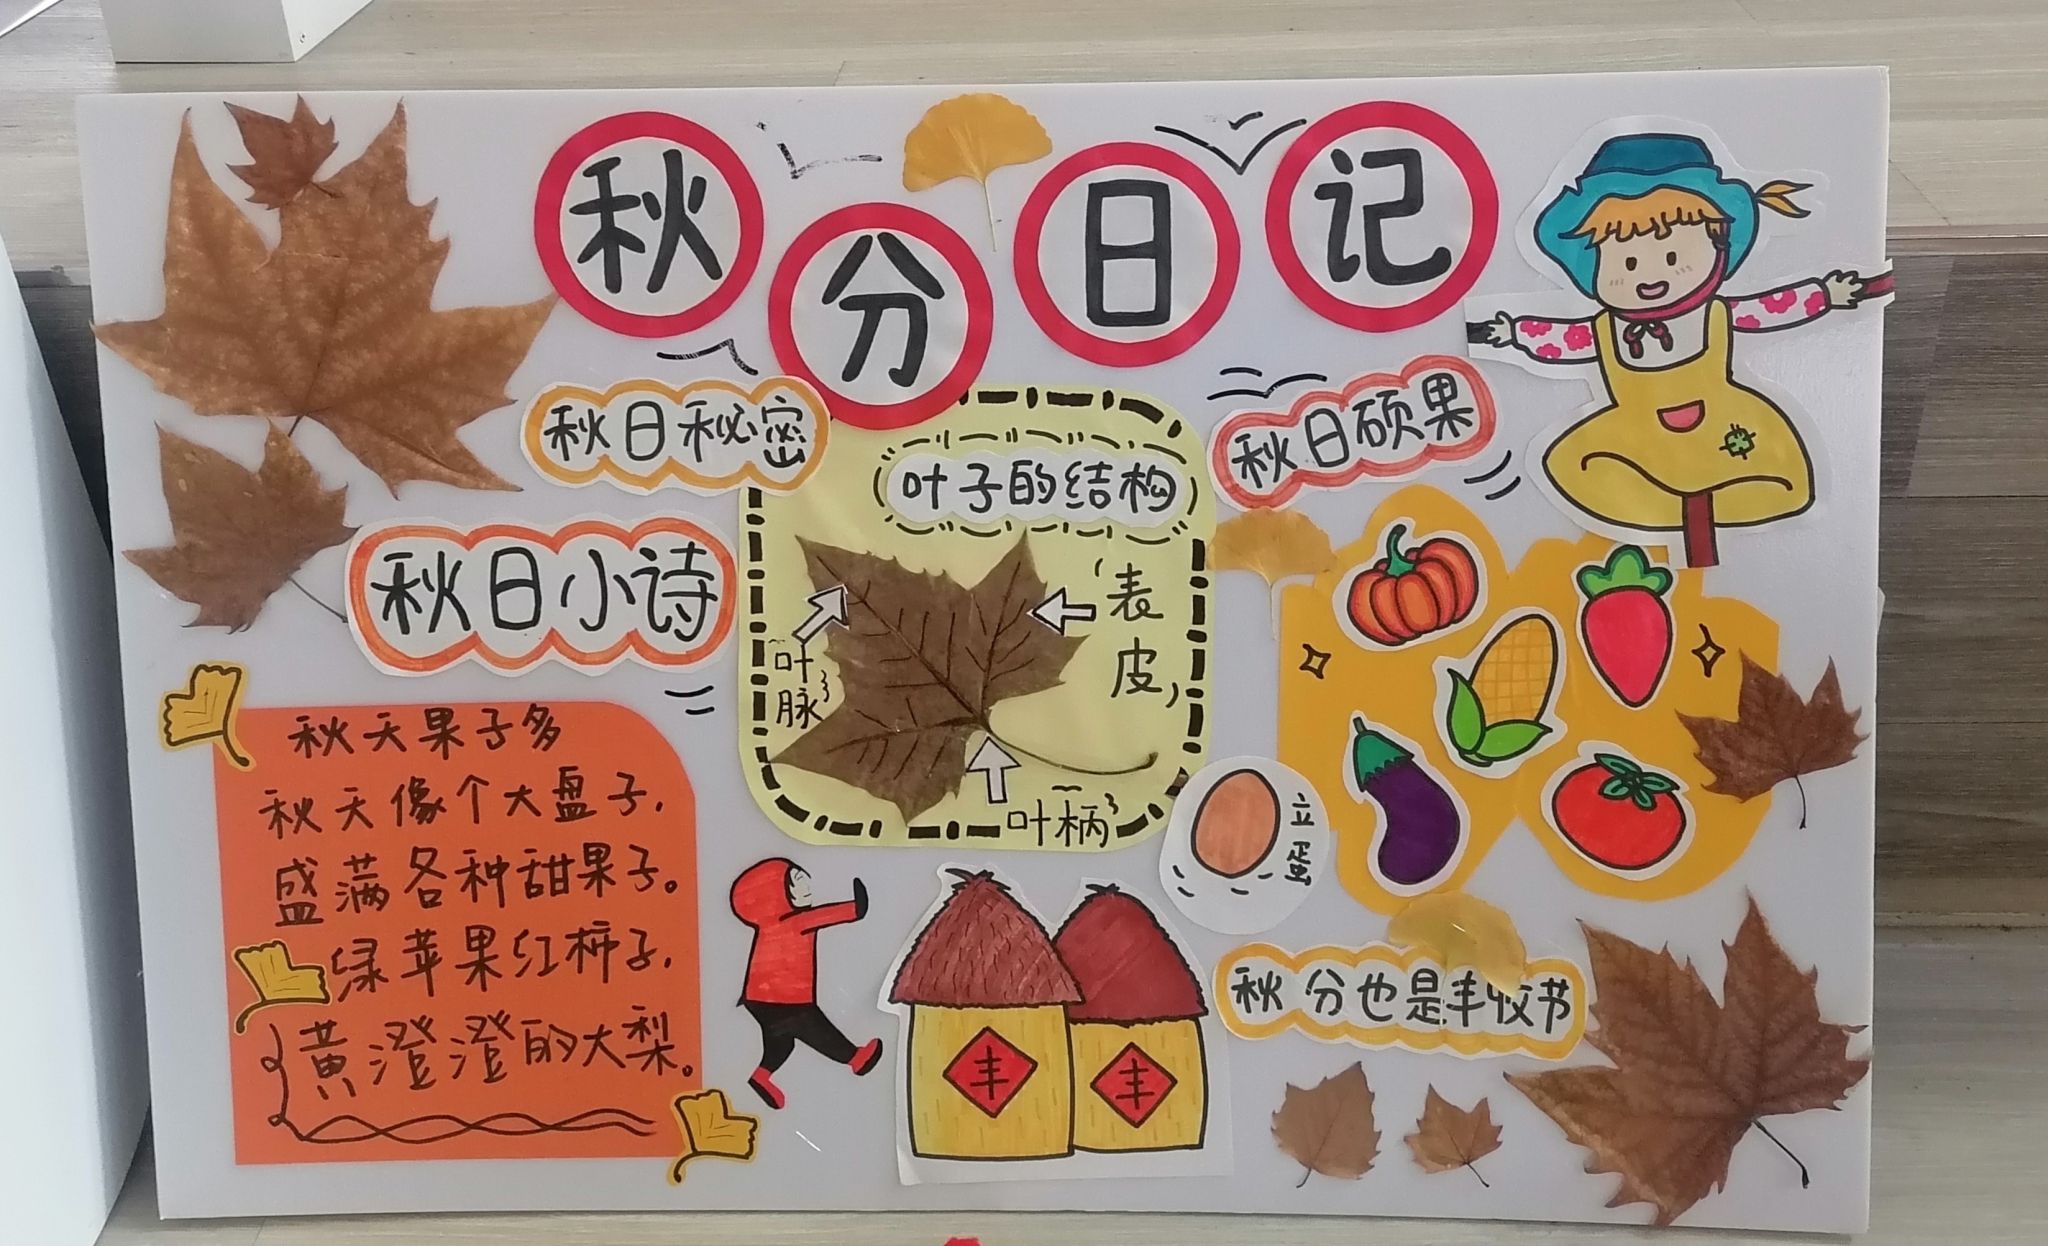 秋分日记
秋日秘密
叶子的结构
秋日硕果
秋日小诗
叶脉
表皮
叶柄
秋天果子多
秋天像个大盘子，
盛满各种甜果子。
绿苹果红柿子，
黄澄澄的大梨。
立蛋
丰
丰
秋分也是丰收节